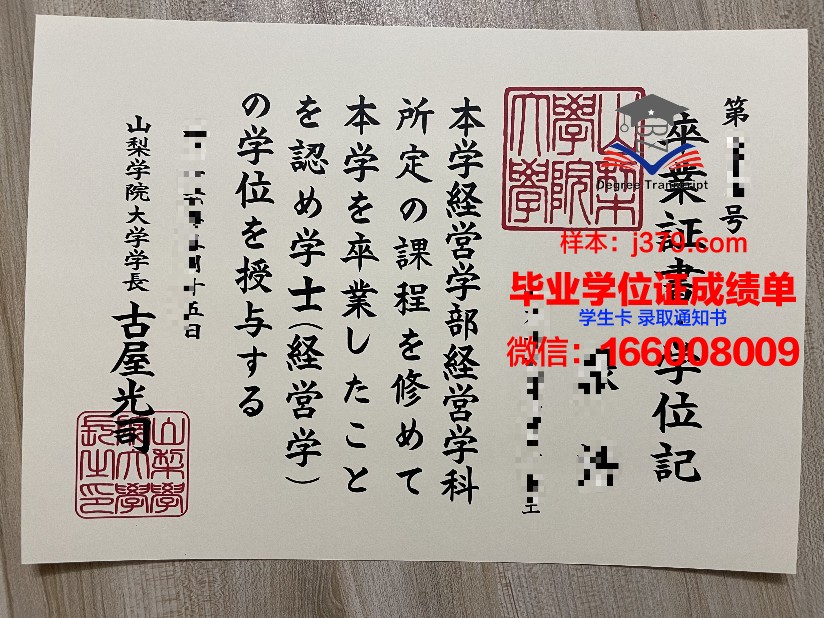 第
号
卒業証書・学位記
本学経営学部経営学科
所定の課程を修めて
本学を卒業したこと
を認め学士(経営学)
の学位を授与する
月十五日
山梨学院大学学長
古屋光司
山梨
學院
大學
山梨學
院大學
長之印
Degree Transcript
样本：j379.com
毕业学位证成绩单
学生卡 录取通知书
微信：166008009